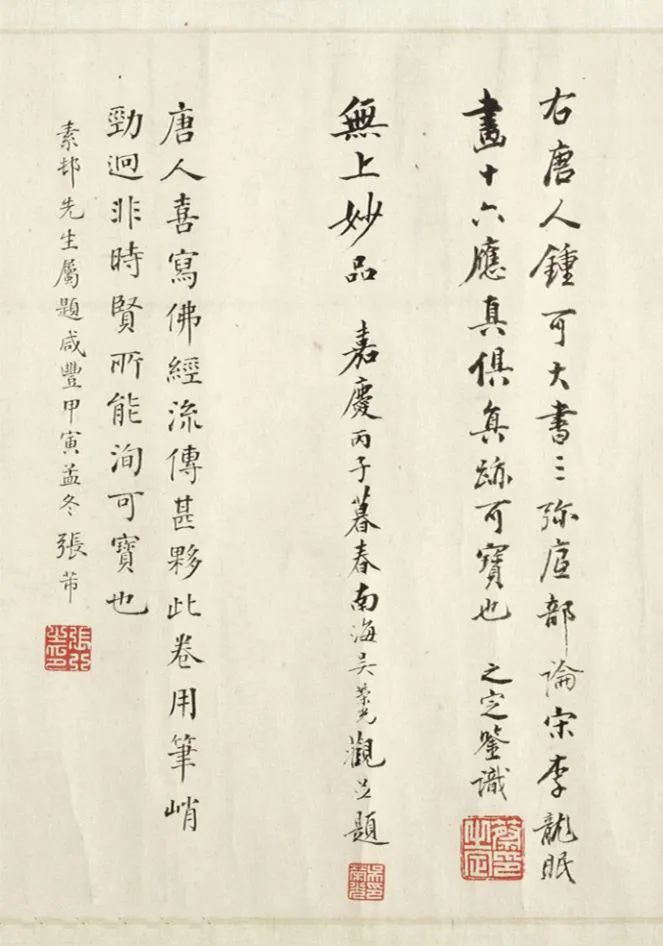 右唐人鍾可大書三弥底部論宋李龍眠
畫十六應真俱真跡可寶也 之定鑒識
蔡印之定
無上妙品 嘉慶丙子暮春南海吳榮光觀並題
吳印榮光
唐人喜寫佛經流傳甚夥此卷用筆峭
勁迥非時賢所能洵可寶也
素邨先生屬題咸豐甲寅孟冬張芾
張芾之印